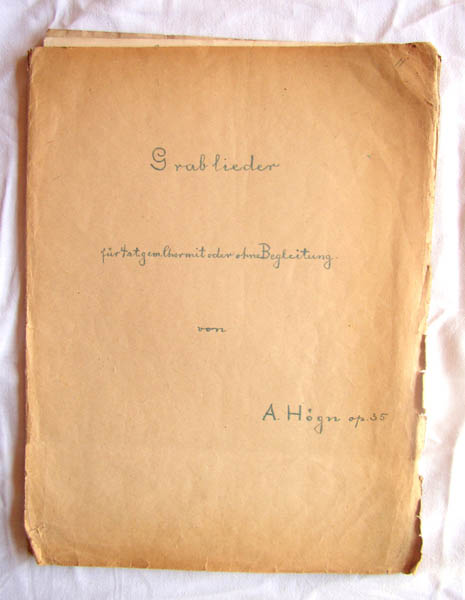 Grablieder
für 4st. gem. Chor mit oder ohne Begleitung.
von
A. Högn op. 35